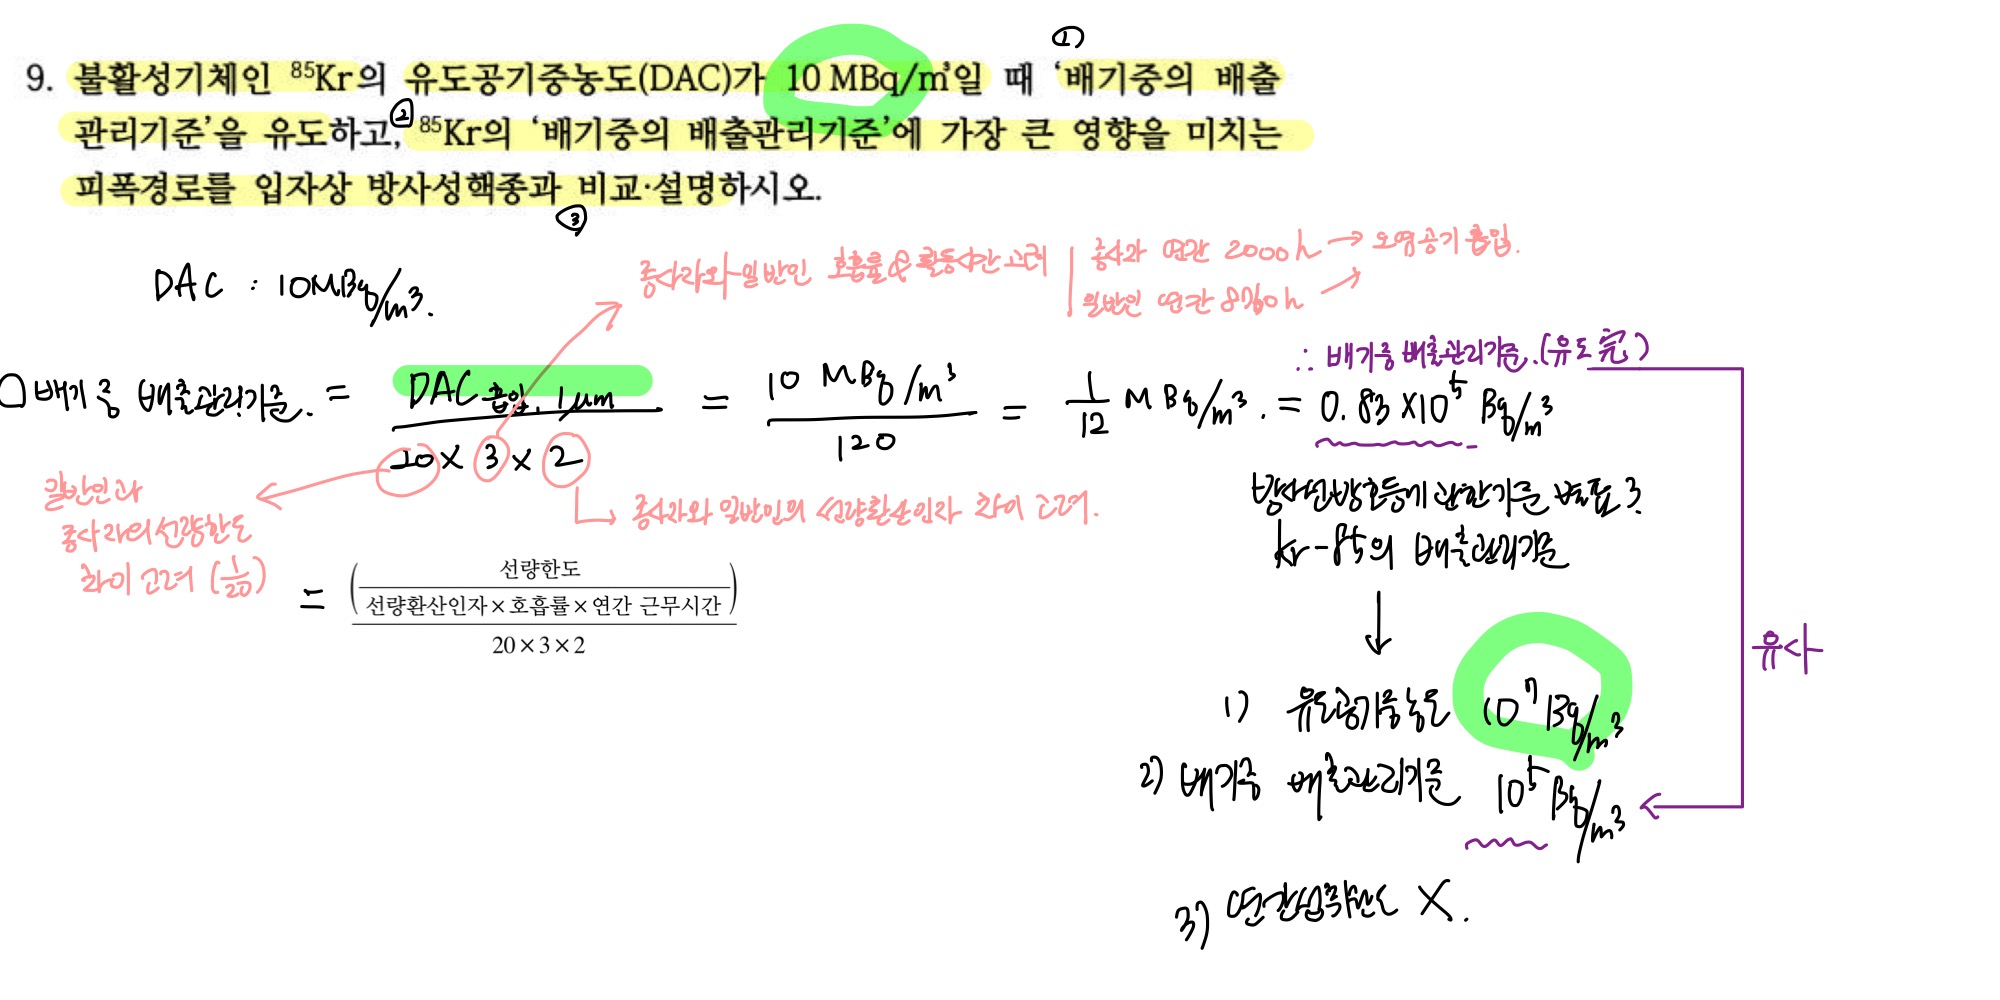 ①
9. 불활성기체인 ⁸⁵Kr의 유도공기중농도(DAC)가 10 MBq/m³일 때 '배기중의 배출
관리기준'을 유도하고, ② ⁸⁵Kr의 '배기중의 배출관리기준'에 가장 큰 영향을 미치는
피폭경로를 입자상 방사성핵종과 비교·설명하시오.
③
DAC : 10MBq/m³.
종사자와 일반인 호흡률 & 활동시간 고려
종사자 연간 2000h → 오염공기 흡입.
일반인 연간 8760h
∴ 배기중 배출관리기준.(유도 完)
○ 배기중 배출관리기준. = DAC 흡입, 1μm / 20 × 3 × 2 = 10 MBq/m³ / 120 = 1/12 MBq/m³. = 0.83 × 10⁵ Bq/m³
일반인과
종사자의 선량한도
차이 고려 (1/20)
종사자와 일반인의 선량환산인자 차이 고려.
= (선량한도 / 선량환산인자 × 호흡률 × 연간 근무시간) / 20 × 3 × 2
방사선방호등에 관한기준 별표 3.
kr-85의 배출관리기준
↓
1) 유도공기중농도 10⁷ Bq/m³
2) 배기중 배출관리기준 10⁵ Bq/m³
유사
3) 연간섭취한도 X.